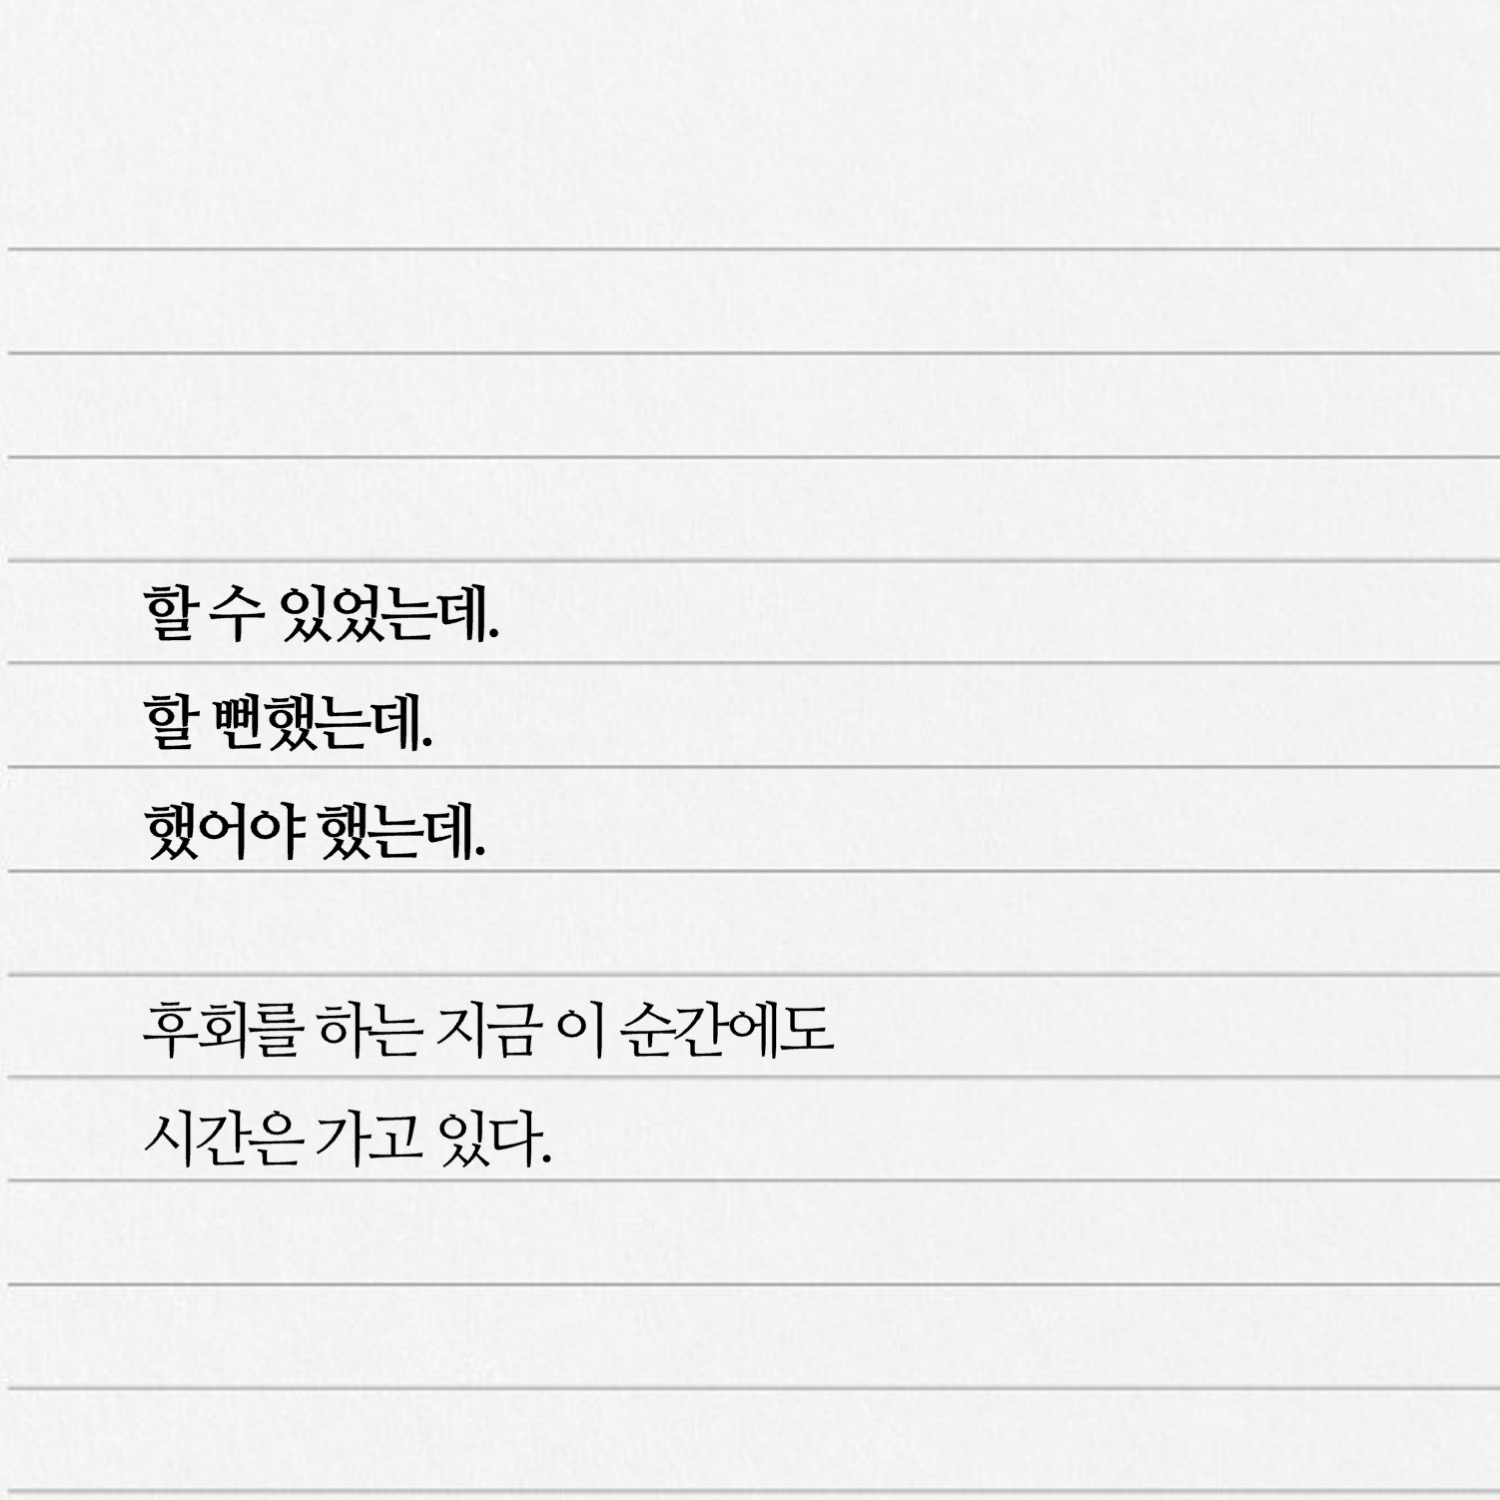 할 수 있었는데.
할 뻔했는데.
했어야 했는데.
후회를 하는 지금 이 순간에도
시간은 가고 있다.